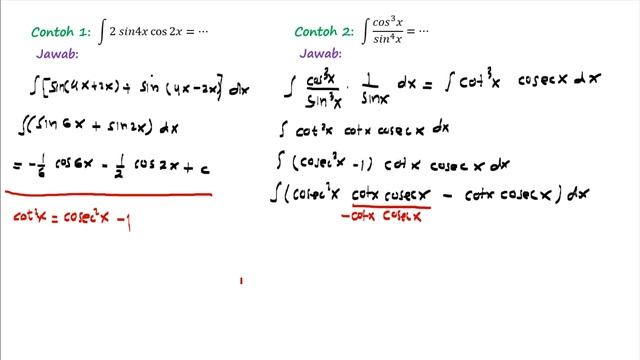 Contoh 1: ∫ 2 sin4x cos 2x = ⋯
Jawab:
∫ [sin(4x+2x) + sin (4x-2x)] dx
∫ (sin 6x + sin 2x) dx
= -1/6 cos 6x - 1/2 cos 2x + c
cot²x = cosec²x - 1
Contoh 2: ∫ cos³x / sin⁴x = ⋯
Jawab:
∫ cos³x / sin³x · 1 / sin x dx = ∫ cot³x cosec x dx
∫ cot²x cot x cosec x dx
∫ (cosec²x -1) cot x cosec x dx
∫ (cosec²x cot x cosec x - cot x cosec x) dx
-cot x cosec x